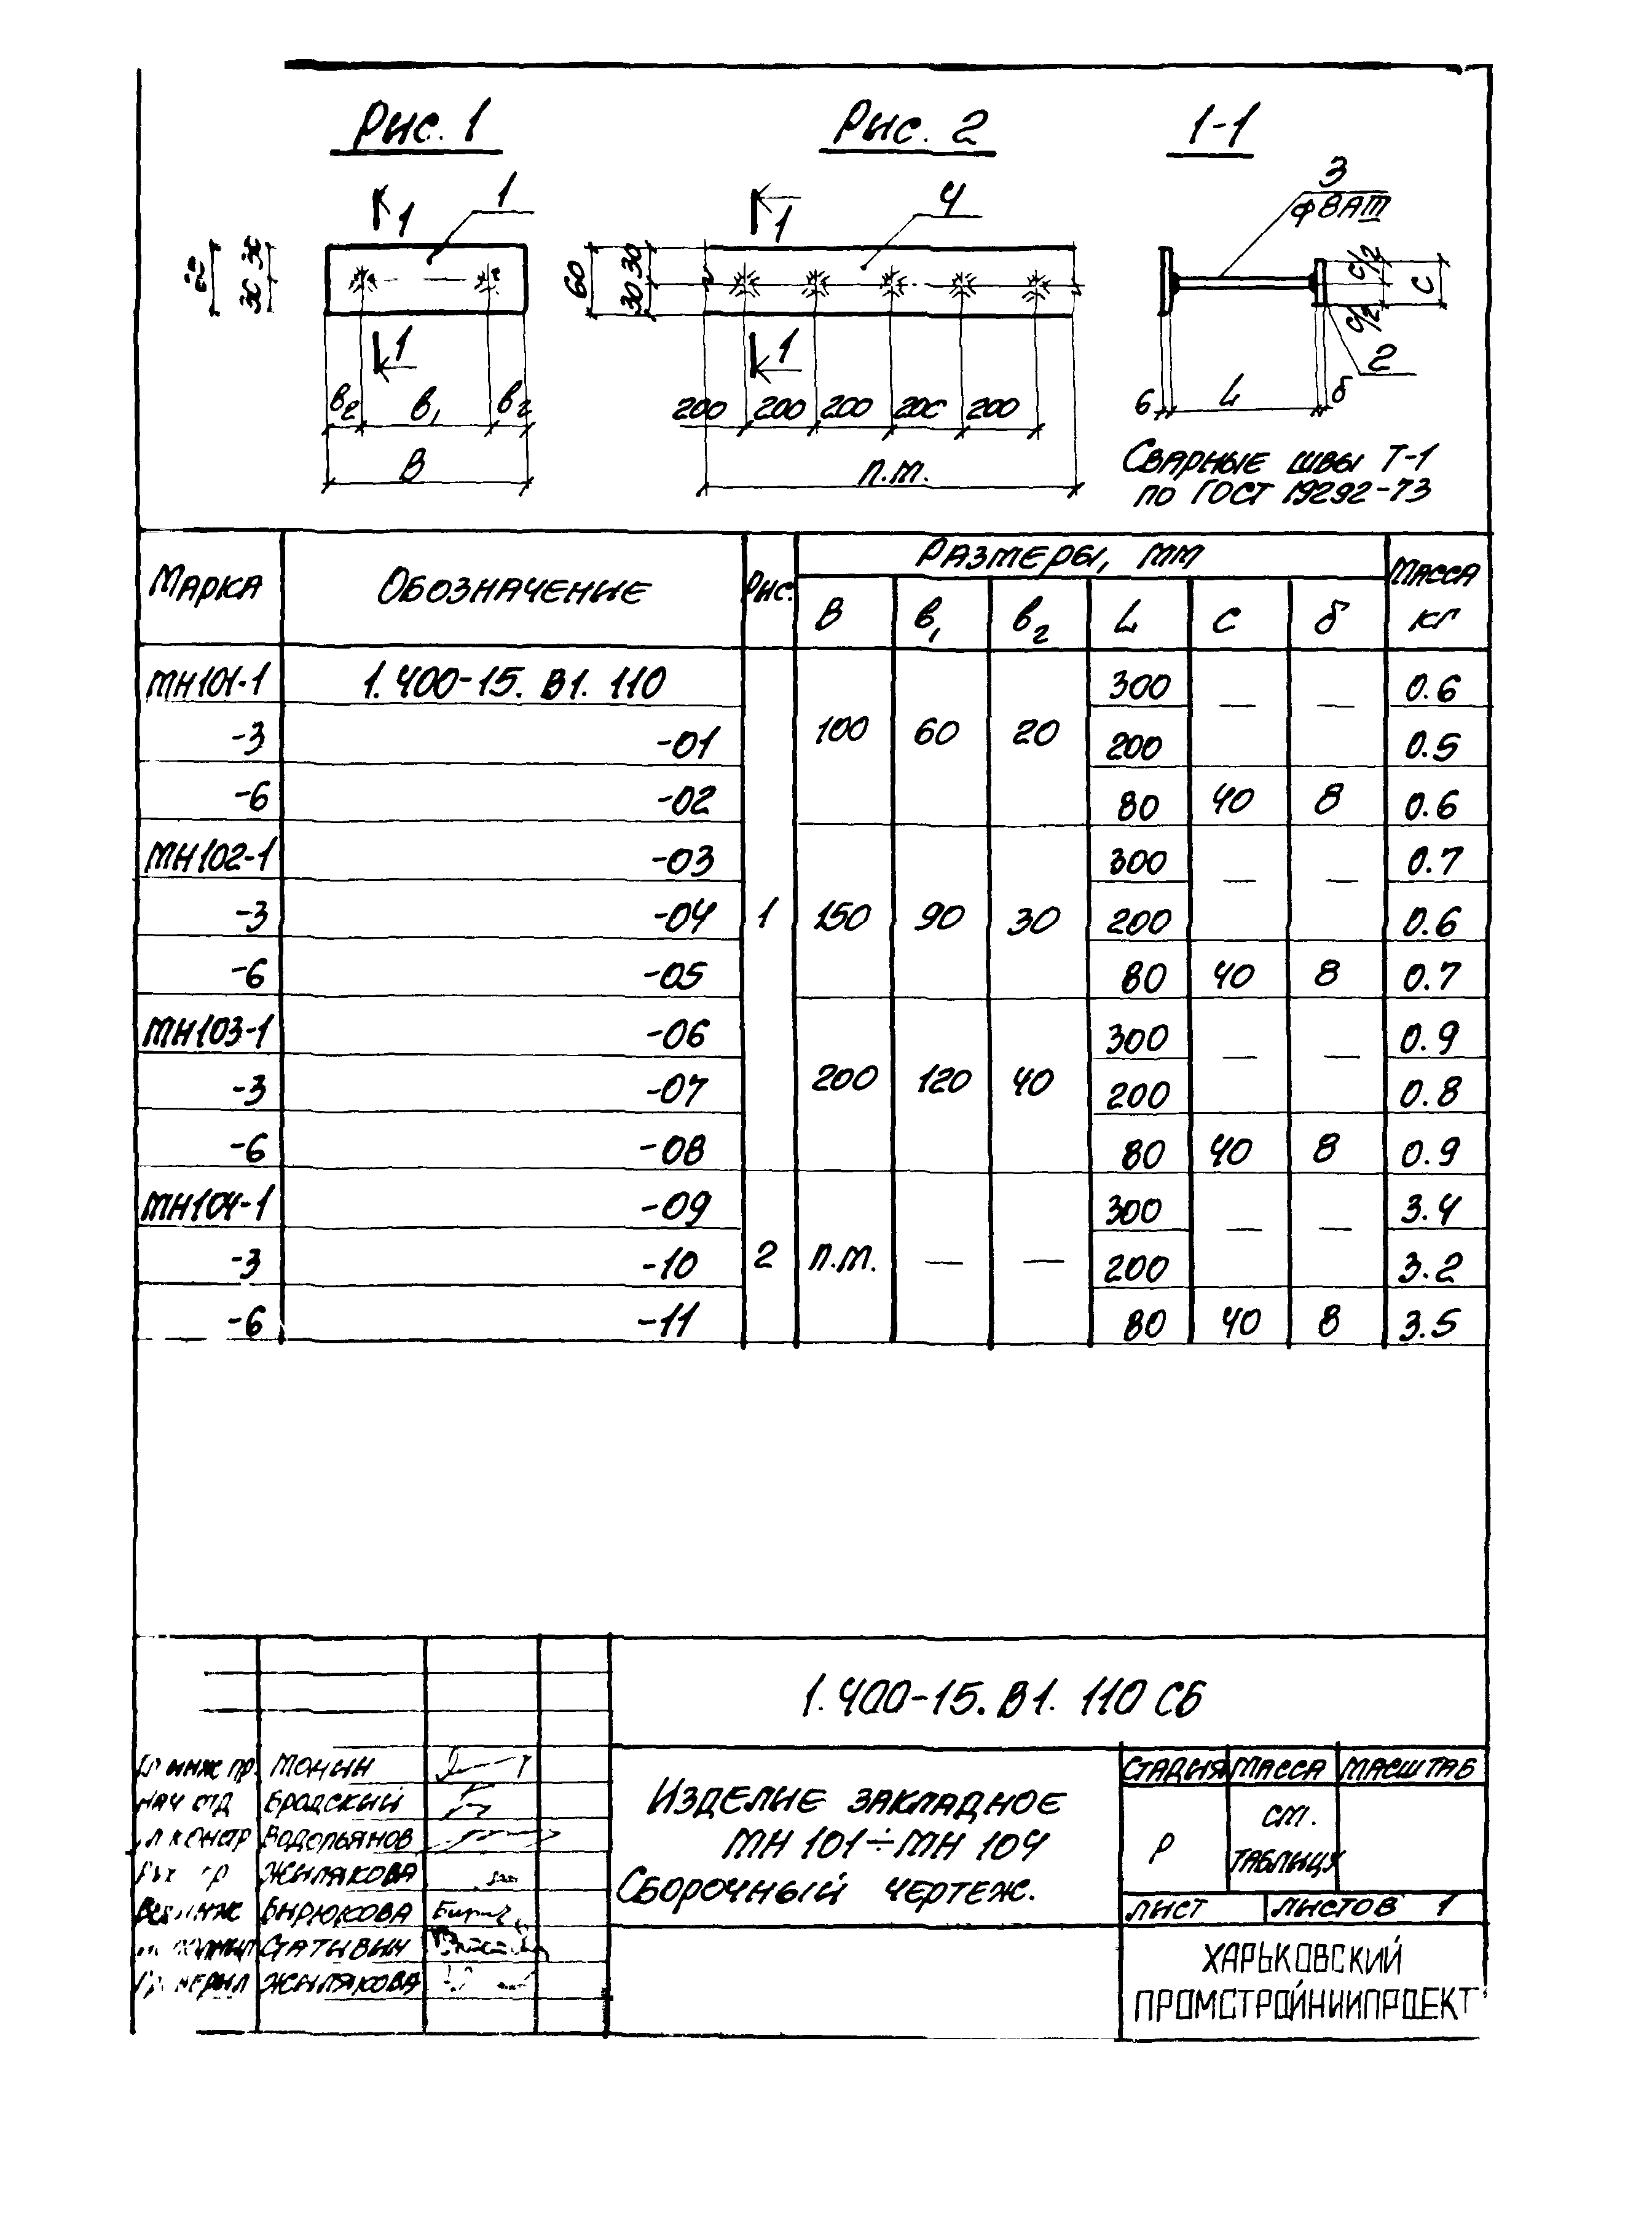 Рис. 1
Рис. 2
1-1
1
1
1
4
3
ф8АIII
30
30
60
30
30
60
1
1
2
c/2
c/2
c
в2 в1 в2
В
200 200 200 200 200
п.м.
6 L δ
Сварные швы Т-1
по ГОСТ 19292-73
Марка Обозначение Рис. Размеры, мм Масса кг
В в1 в2 L c δ
МН101-1 1.400-15.В1.110 300 — — 0.6
-3 -01 100 60 20 200 0.5
-6 -02 80 40 8 0.6
МН102-1 -03 300 — — 0.7
-3 -04 1 150 90 30 200 0.6
-6 -05 80 40 8 0.7
МН103-1 -06 300 — — 0.9
-3 -07 200 120 40 200 0.8
-6 -08 80 40 8 0.9
МН104-1 -09 300 — — 3.4
-3 -10 2 п.м. — — 200 3.2
-6 -11 80 40 8 3.5
1.400-15.В1.110 СБ
инж пр. Монин
Нач отд Бродский
констр Водопьянов
Жилякова
Вед инж Бирюкова
Статывин
Жилякова
Изделие закладное
МН 101÷МН 104
Сборочный чертеж.
Стадия Масса Масштаб
Р см. таблицу
Лист Листов 1
ХАРЬКОВСКИЙ
ПРОМСТРОЙНИИПРОЕКТ